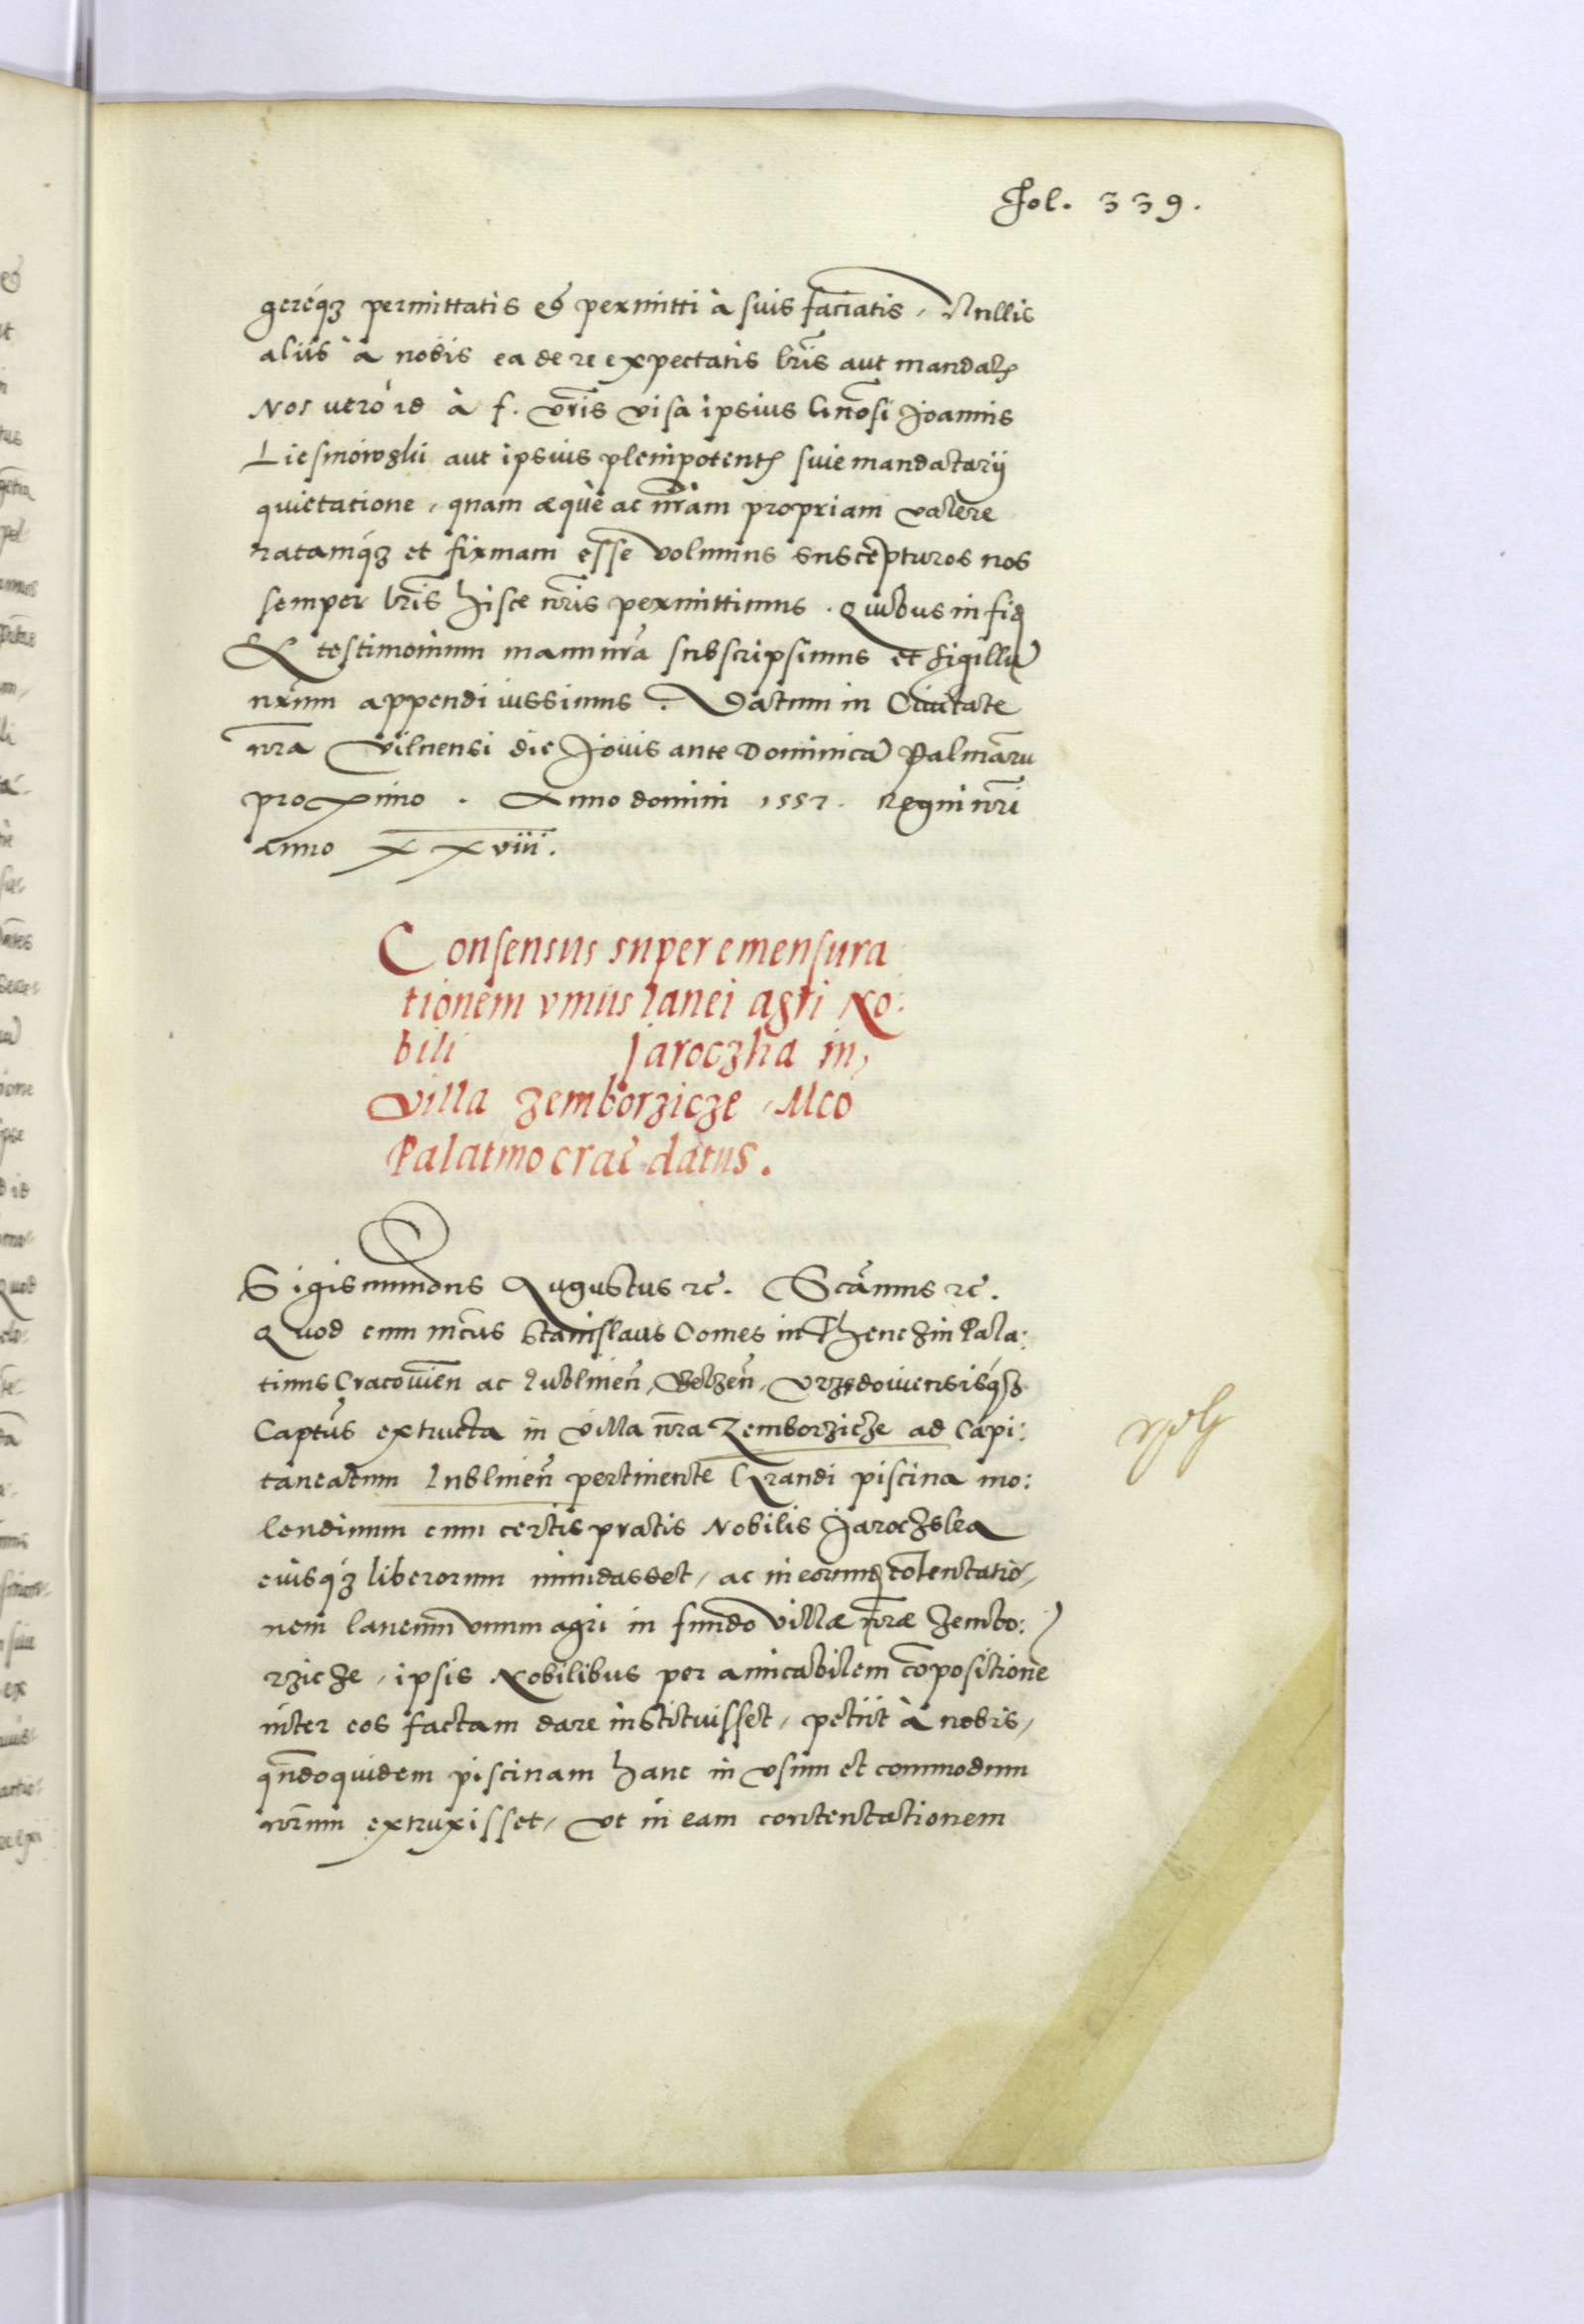 Fol. 339.
gereq́ꝫ permittatis et permitti à suis faciatis, Nullis
aliis à nobis ea de re expectatis lr̃is aut mandatꝭ
Nos uero id à f. vr̃is visa ipsius Gñosi Joannis
Liesniowskii aut ipsius plenipotentꝭ siue mandatarij
quietatione, quam æquè ac nr̃am propriam valere
ratamq́ꝫ et firmam esse volumus suscepturos nos
semper lr̃is hisce nr̃is permittimus. Quibus in fid
et testimonium manu nr̃a subscripsimus et sigillũ
nr̃um appendi iussimus. Datum in Ciuitate
nr̃a Vilnensi die Jouis ante Dominicã Palmarũ
proximo. Anno domini 1557. Regni nr̃i
anno XXviii.
Consensus super emensura
tionem vnius lanei agri No:
bili Jaroczka in,
villa Zemborzicze, Mco
Palatino crac̃ datus.
Sigismundus Augustus ꝛc̃. Sc̃amus ꝛc̃.
Quod cum mc̃us Stanislaus Comes in Thenczin Pala:
tinus Cracouien̄ ac Lublinen̄, Belzen̄, Vrzedouiensisq́ꝫ
Captũs extructa in villa nr̃a Zemborzicze ad Capi:
taneatum Lublinen̄ pertinente Grandi piscina mo:
lendinum cum certis pratis Nobilis Jaroczska
eiusq́ꝫ liberorum inundasset, ac in eorund cõtentatio,
nem laneum vnum agri in fundo villæ nr̃æ Zembo:
rzicze, ipsis Nobilibus per amicabilem cõpositionẽ
inter eos factam dare instituisset, petiit à nobis,
quñdoquidem piscinam hanc in vsum et commodum
nr̃um extruxisset, vt in eam contentationem